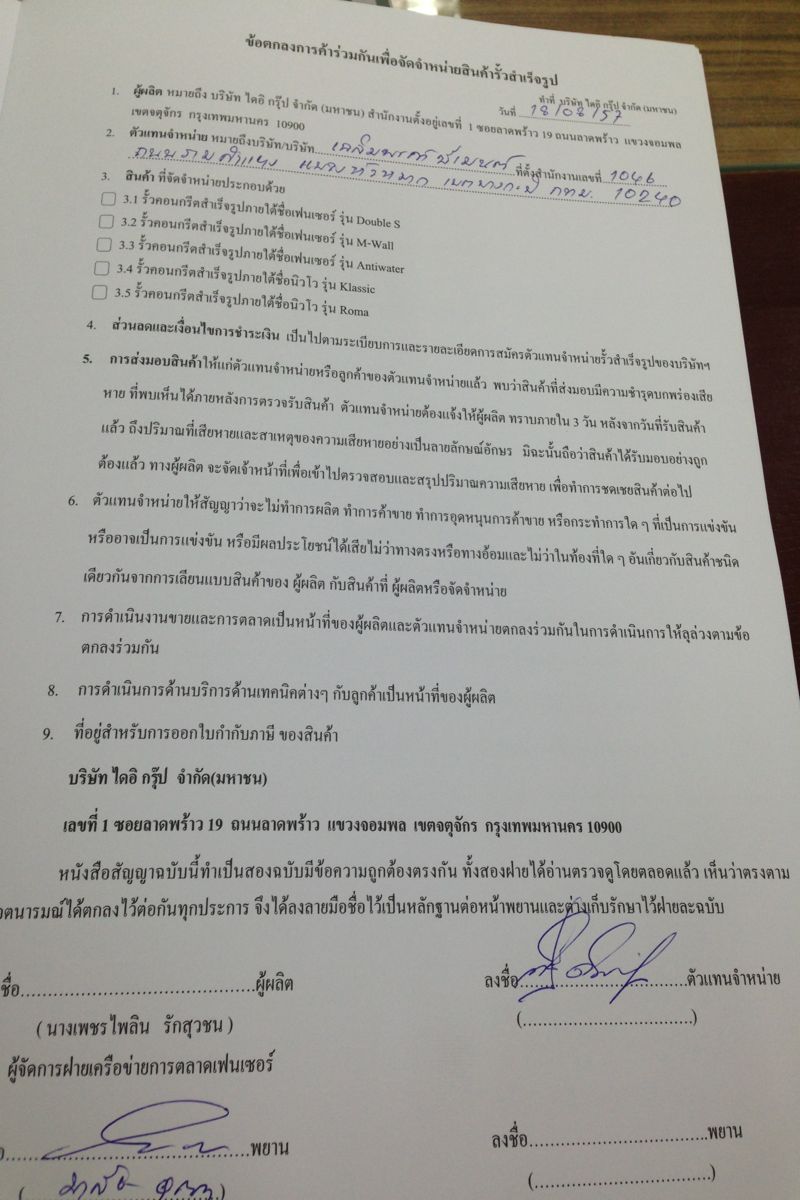 ข้อตกลงการค้าร่วมกันเพื่อจัดจำหน่ายสินค้ารั้วสำเร็จรูป
ทำที่ บริษัท ไดอิ กรุ๊ป จำกัด (มหาชน)
วันที่ 18/08/57
1. ผู้ผลิต หมายถึง บริษัท ไดอิ กรุ๊ป จำกัด (มหาชน) สำนักงานตั้งอยู่เลขที่ 1 ซอยลาดพร้าว 19 ถนนลาดพร้าว แขวงจอมพล
เขตจตุจักร กรุงเทพมหานคร 10900
2. ตัวแทนจำหน่าย หมายถึงบริษัท/บริษัท ที่ตั้งสำนักงานเลขที่ 1046
ถนนรามคำแหง แขวงหัวหมาก เขตบางกะปิ กทม. 10240
3. สินค้า ที่จัดจำหน่ายประกอบด้วย
3.1 รั้วคอนกรีตสำเร็จรูปภายใต้ชื่อเฟนเซอร์ รุ่น Double S
3.2 รั้วคอนกรีตสำเร็จรูปภายใต้ชื่อเฟนเซอร์ รุ่น M-Wall
3.3 รั้วคอนกรีตสำเร็จรูปภายใต้ชื่อเฟนเซอร์ รุ่น Antiwater
3.4 รั้วคอนกรีตสำเร็จรูปภายใต้ชื่อนิวโว รุ่น Klassic
3.5 รั้วคอนกรีตสำเร็จรูปภายใต้ชื่อนิวโว รุ่น Roma
4. ส่วนลดและเงื่อนไขการชำระเงิน เป็นไปตามระเบียบการและรายละเอียดการสมัครตัวแทนจำหน่ายรั้วสำเร็จรูปของบริษัทฯ
5. การส่งมอบสินค้าให้แก่ตัวแทนจำหน่ายหรือลูกค้าของตัวแทนจำหน่ายแล้ว พบว่าสินค้าที่ส่งมอบมีความชำรุดบกพร่องเสีย
หาย ที่พบเห็นได้ภายหลังการตรวจรับสินค้า ตัวแทนจำหน่ายต้องแจ้งให้ผู้ผลิต ทราบภายใน 3 วัน หลังจากวันที่รับสินค้า
แล้ว ถึงปริมาณที่เสียหายและสาเหตุของความเสียหายอย่างเป็นลายลักษณ์อักษร มิฉะนั้นถือว่าสินค้าได้รับมอบอย่างถูก
ต้องแล้ว ทางผู้ผลิต จะจัดเจ้าหน้าที่เพื่อเข้าไปตรวจสอบและสรุปปริมาณความเสียหาย เพื่อทำการชดเชยสินค้าต่อไป
6. ตัวแทนจำหน่ายให้สัญญาว่าจะไม่ทำการผลิต ทำการค้าขาย ทำการอุดหนุนการค้าขาย หรือกระทำการใด ๆ ที่เป็นการแข่งขัน
หรืออาจเป็นการแข่งขัน หรือมีผลประโยชน์ได้เสียไม่ว่าทางตรงหรือทางอ้อมและไม่ว่าในท้องที่ใด ๆ อันเกี่ยวกับสินค้าชนิด
เดียวกันจากการเลียนแบบสินค้าของ ผู้ผลิต กับสินค้าที่ ผู้ผลิตหรือจัดจำหน่าย
7. การดำเนินงานขายและการตลาดเป็นหน้าที่ของผู้ผลิตและตัวแทนจำหน่ายตกลงร่วมกันในการดำเนินการให้ลุล่วงตามข้อ
ตกลงร่วมกัน
8. การดำเนินการด้านบริการด้านเทคนิคต่างๆ กับลูกค้าเป็นหน้าที่ของผู้ผลิต
9. ที่อยู่สำหรับการออกใบกำกับภาษี ของสินค้า
บริษัท ไดอิ กรุ๊ป จำกัด(มหาชน)
เลขที่ 1 ซอยลาดพร้าว 19 ถนนลาดพร้าว แขวงจอมพล เขตจตุจักร กรุงเทพมหานคร 10900
หนังสือสัญญาฉบับนี้ทำเป็นสองฉบับมีข้อความถูกต้องตรงกัน ทั้งสองฝ่ายได้อ่านตรวจดูโดยตลอดแล้ว เห็นว่าตรงตาม
เจตนารมณ์ได้ตกลงไว้ต่อกันทุกประการ จึงได้ลงลายมือชื่อไว้เป็นหลักฐานต่อหน้าพยานและต่างเก็บรักษาไว้ฝ่ายละฉบับ
ชื่อ........................................ผู้ผลิต
ลงชื่อ..............................ตัวแทนจำหน่าย
( นางเพชรไพลิน รักสุวชน )
(..............................)
ผู้จัดการฝ่ายเครือข่ายการตลาดเฟนเซอร์
พยาน
ลงชื่อ..............................พยาน
(..............................)